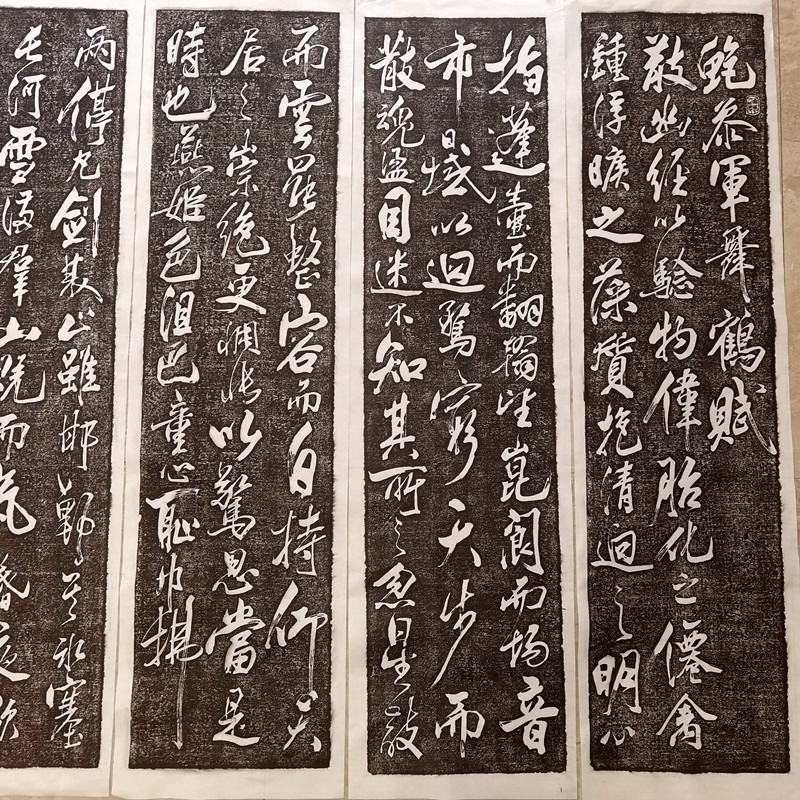 鮑叅軍舞鶴賦
散幽經以驗物偉胎化之僊禽
鍾浮曠之藻質抱清迥之明心
指蓬壺而翻翰望崑閬而揚音
帀日域以迴騖窮天步而
散魂盪目迷不知其所之忽星
而雲羅整容而自持仰天
居之崇絕更惆悵以驚思當是
時也燕姬色沮巴童心恥巾拂
兩停丸劍止雖邯鄲其冰塞
長河雪滿羣山既而氛昏夜歇